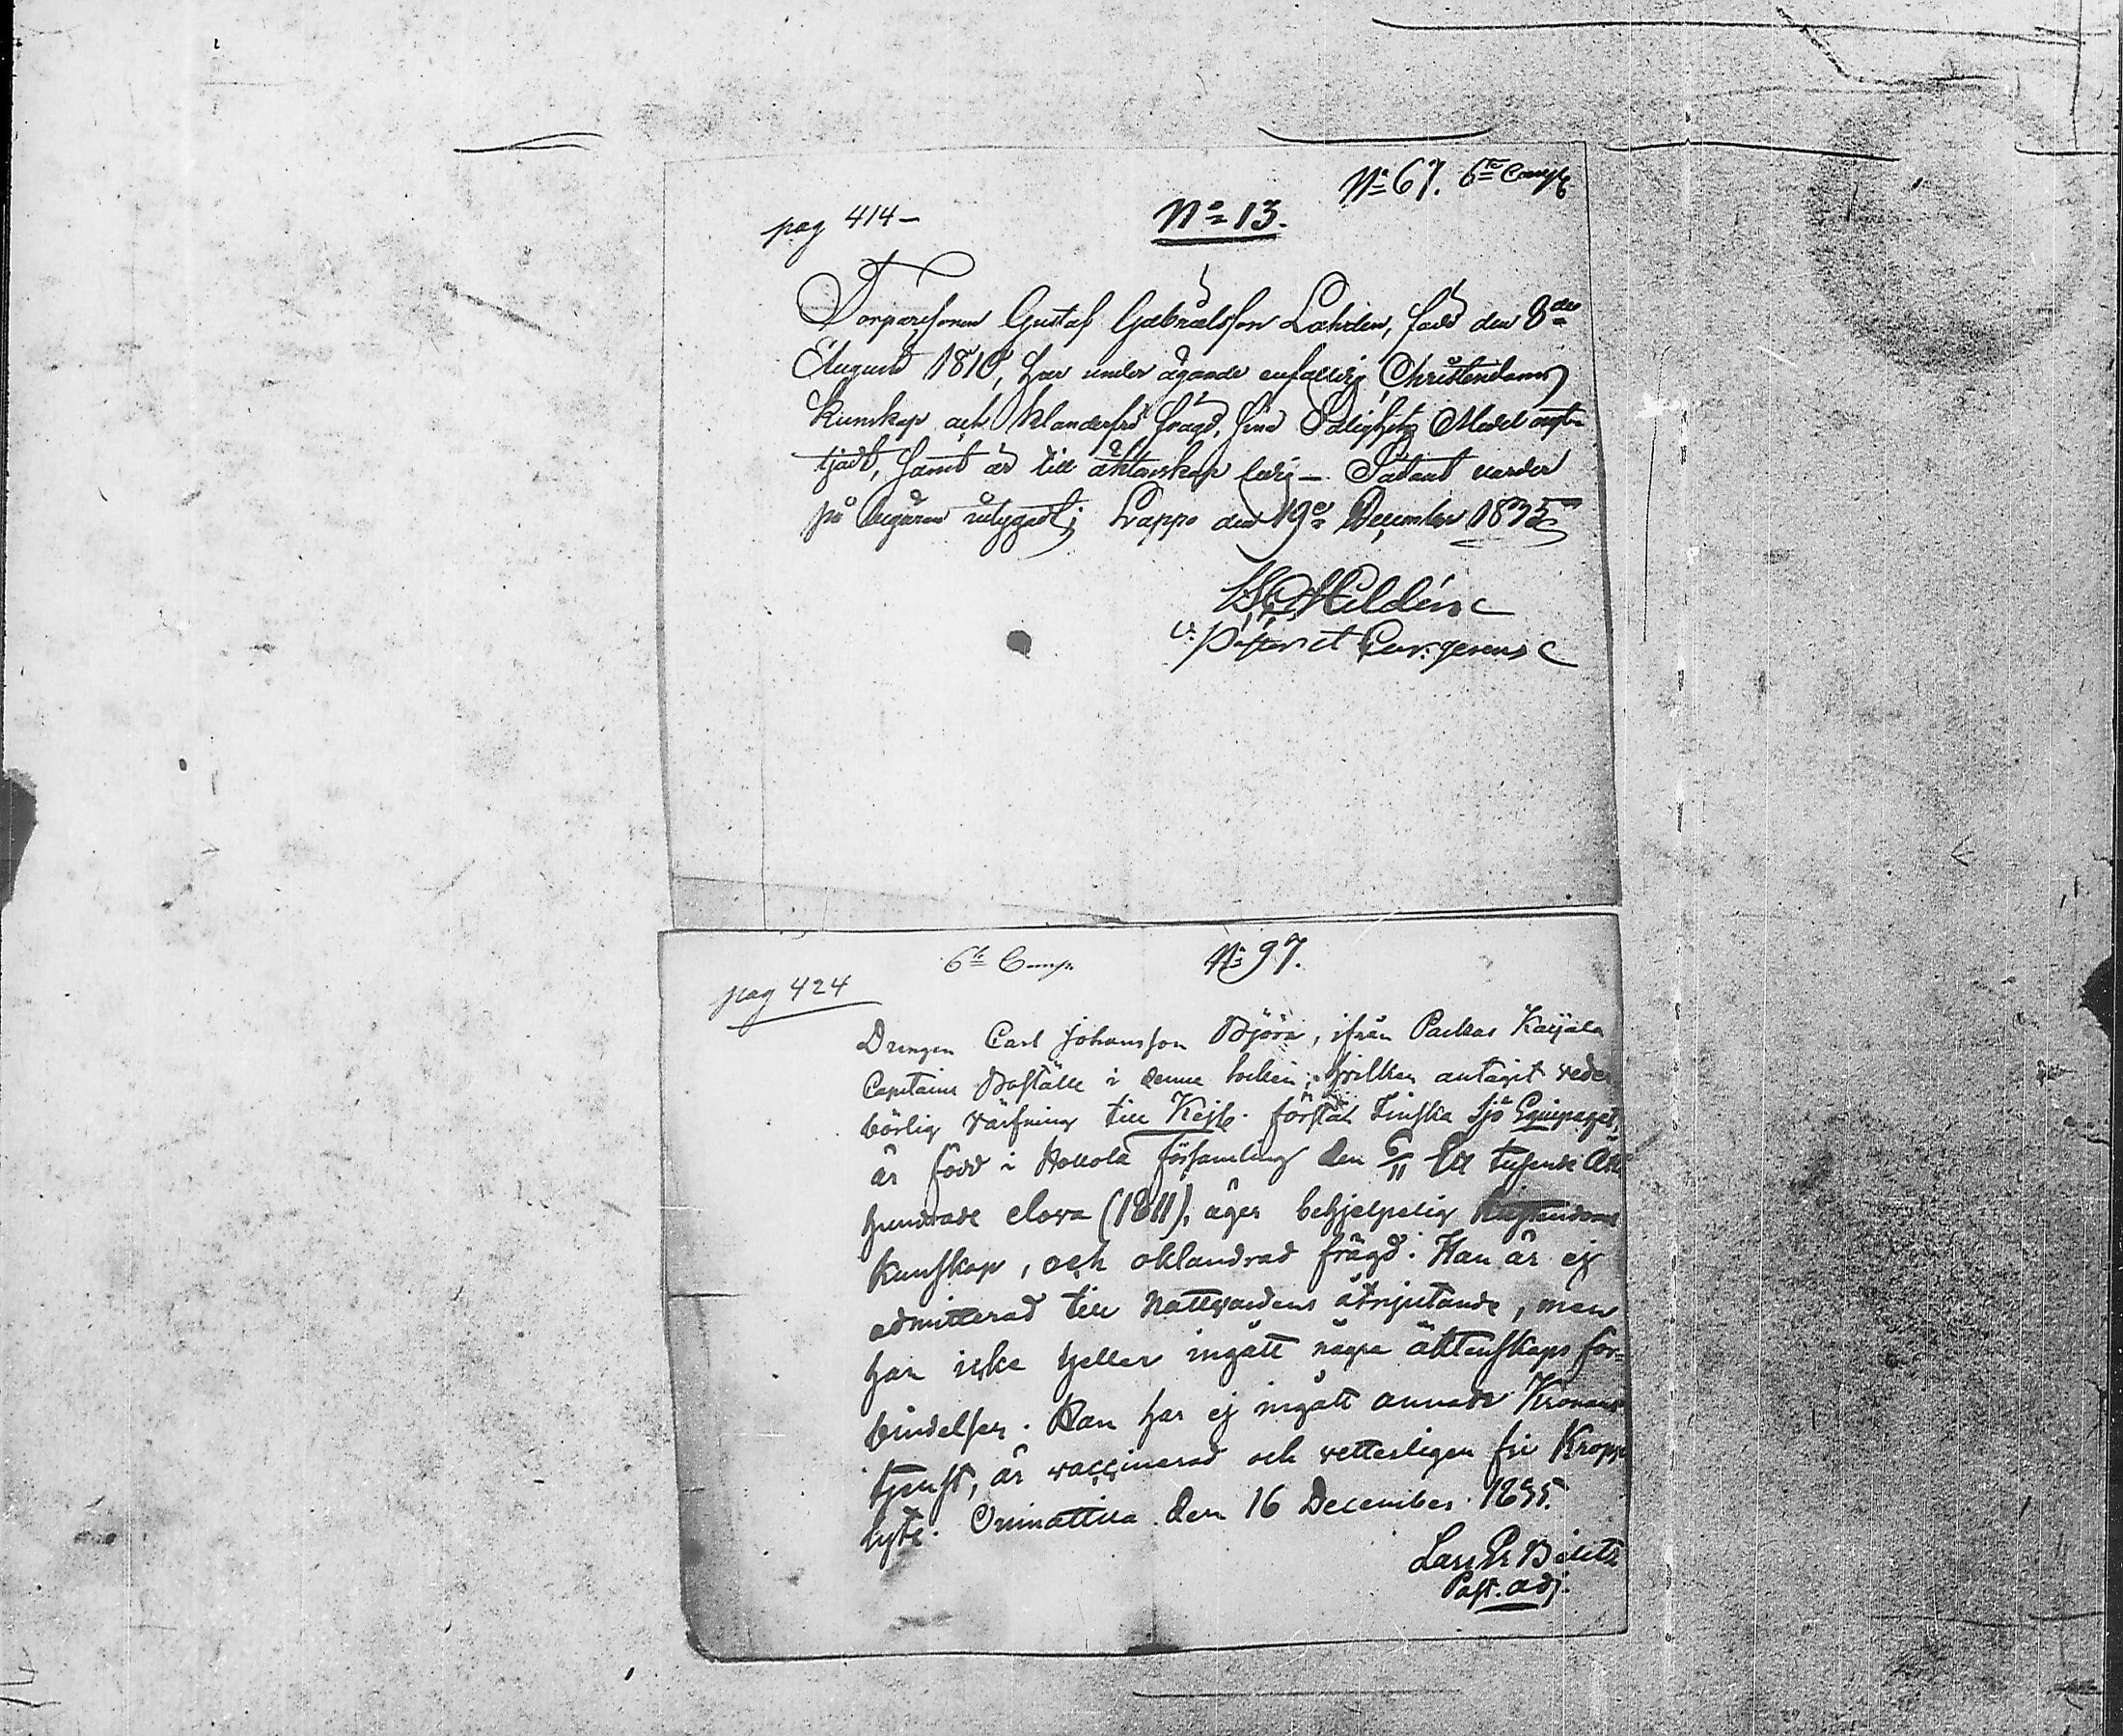 No 67. 6te Comp
pag 414 –
No 13.
Torparesonen Gustaf Gabrielsson Lahden, född den 8de
Augusti 1810, har under ägande enfaldig Christendoms
kunskap och klanderfri frägd, sina Salighets Medel
tjadt, samt är till äktenskap ledig – Sådant varder
på begäran Lappo den 19e December 1835
Hildén
v. Pastor et Cur. gerens
6te Comp.
No 97.
pag 424
Drengen Carl Johansson Björn, ifrån Packas Karjala
Capitains Boställe i denne Socken, hvilken antagit veder
börlig värfning till Kejs. första Finska Sjö Equipaget,
är född i Hollola församling den 6/11 Ett tusende Åtta
hundrade elova (1811), äger behjelpelig Kristendoms
Kunskap, och oklandrad frägd. Han är ej
admitterad till Nattvardens åtnjutande, men
har icke heller ingått några äktenskaps för=
bindelser. Han har ej ingått annade Kronans
tjenst, är vaccinerad och vetterligen fri Kropps
lyte. Orimattila den 16 December 1835.
Lars Pr
Past. adj.